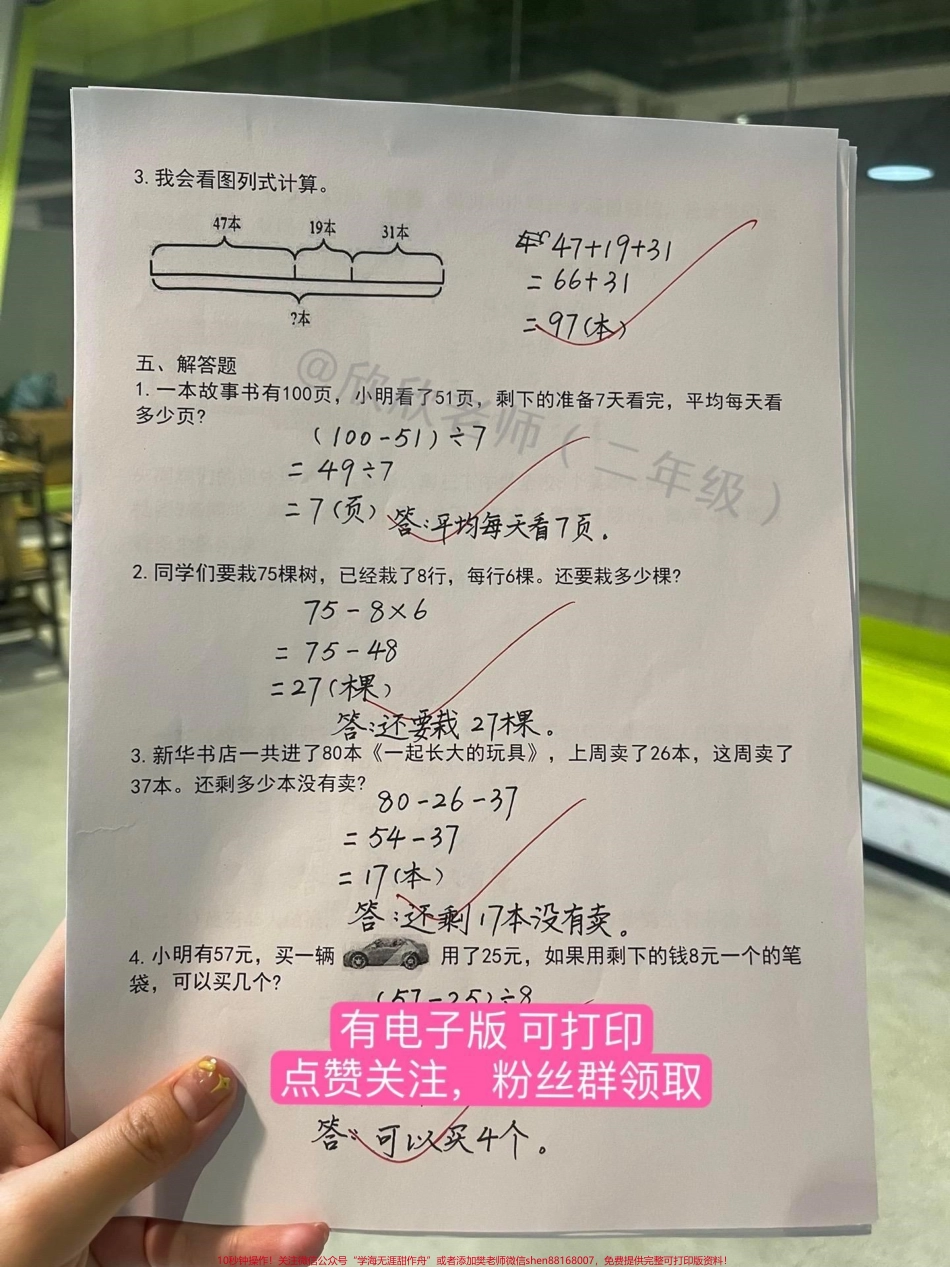 3. 我会看图列式计算。
47本 19本 31本
?本
47+19+31
= 66+31
= 97(本)
五、解答题
1. 一本故事书有100页，小明看了51页，剩下的准备7天看完，平均每天看
多少页?
(100-51)÷7
= 49÷7
= 7(页)
答:平均每天看7页.
2. 同学们要栽75棵树，已经栽了8行，每行6棵。还要栽多少棵?
75-8×6
= 75-48
=27(棵)
答:还要栽 27棵。
3. 新华书店一共进了80本《一起长大的玩具》，上周卖了26本，这周卖了
37本。还剩多少本没有卖?
80-26-37
= 54-37
= 17(本)
答:还剩17本没有卖。
4. 小明有57元，买一辆 用了25元，如果用剩下的钱8元一个的笔
袋，可以买几个?
(57-25)÷8
答: 可以买4个。
@欣欣老师（二年级）
有电子版 可打印
点赞关注，粉丝群领取
10秒钟操作！关注微信公众号“学海无涯甜作舟”或者添加樊老师微信shen88168007，免费提供完整可打印版资料！